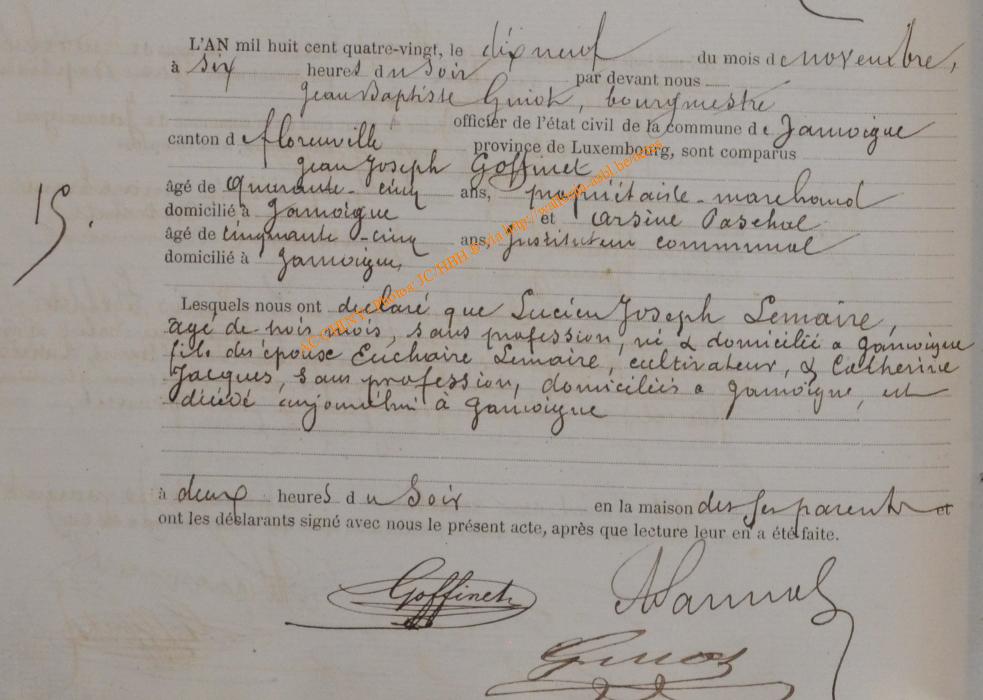 L'AN mil huit cent quatre-vingt, le dix neuf du mois de novembre,
à six heures du Soir par devant nous
Jean Baptiste Guiot, bourgmestre
officier de l'état civil de la commune de Jamoigne
canton de florenville province de Luxembourg, sont comparus
Jean Joseph Goffinet
âgé de quarante-cinq ans, propriétaire-marchand
domicilié à Jamoigne et Arsène
âgé de cinquante-cinq ans, Instituteur communal
domicilié à Jamoigne,
15.
Lesquels nous ont déclaré que Lucien Joseph Lemaire,
âgé de trois mois, sans profession, né & domicilié a Jamoigne
fils des épouse Euchaire Lemaire, cultivateur, & Catherine
Jacques, sans profession, domiciliés a Jamoigne, est
décédé aujourd'hui à Jamoigne
à deux heures du Soir en la maison des ses parents et
ont les déclarants signé avec nous le présent acte, après que lecture leur en a été faite.
Goffinet
Guiot